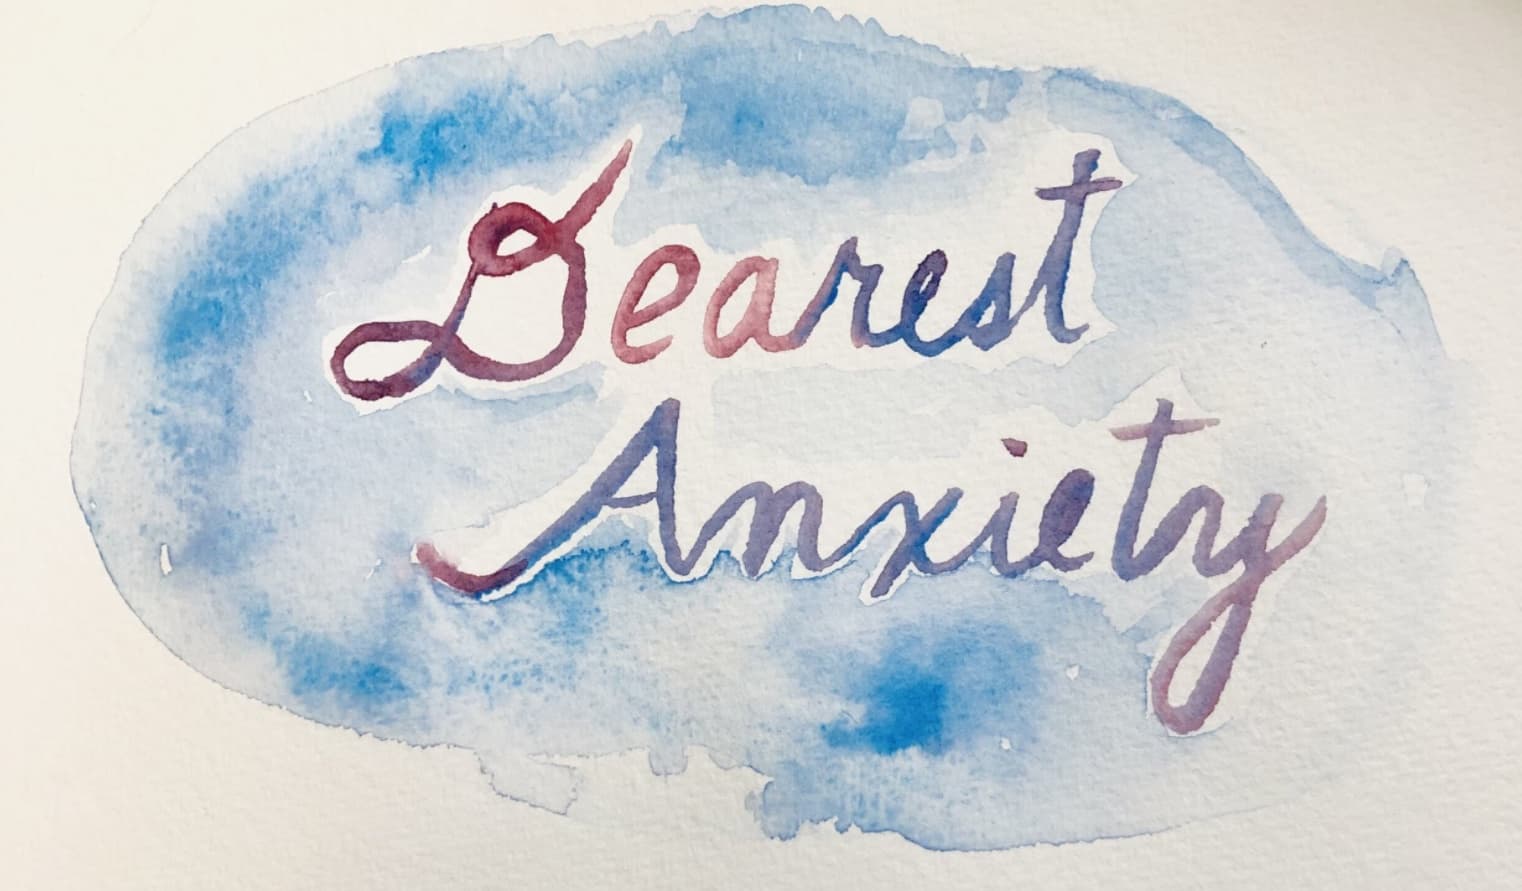 Dearest
Anxiety